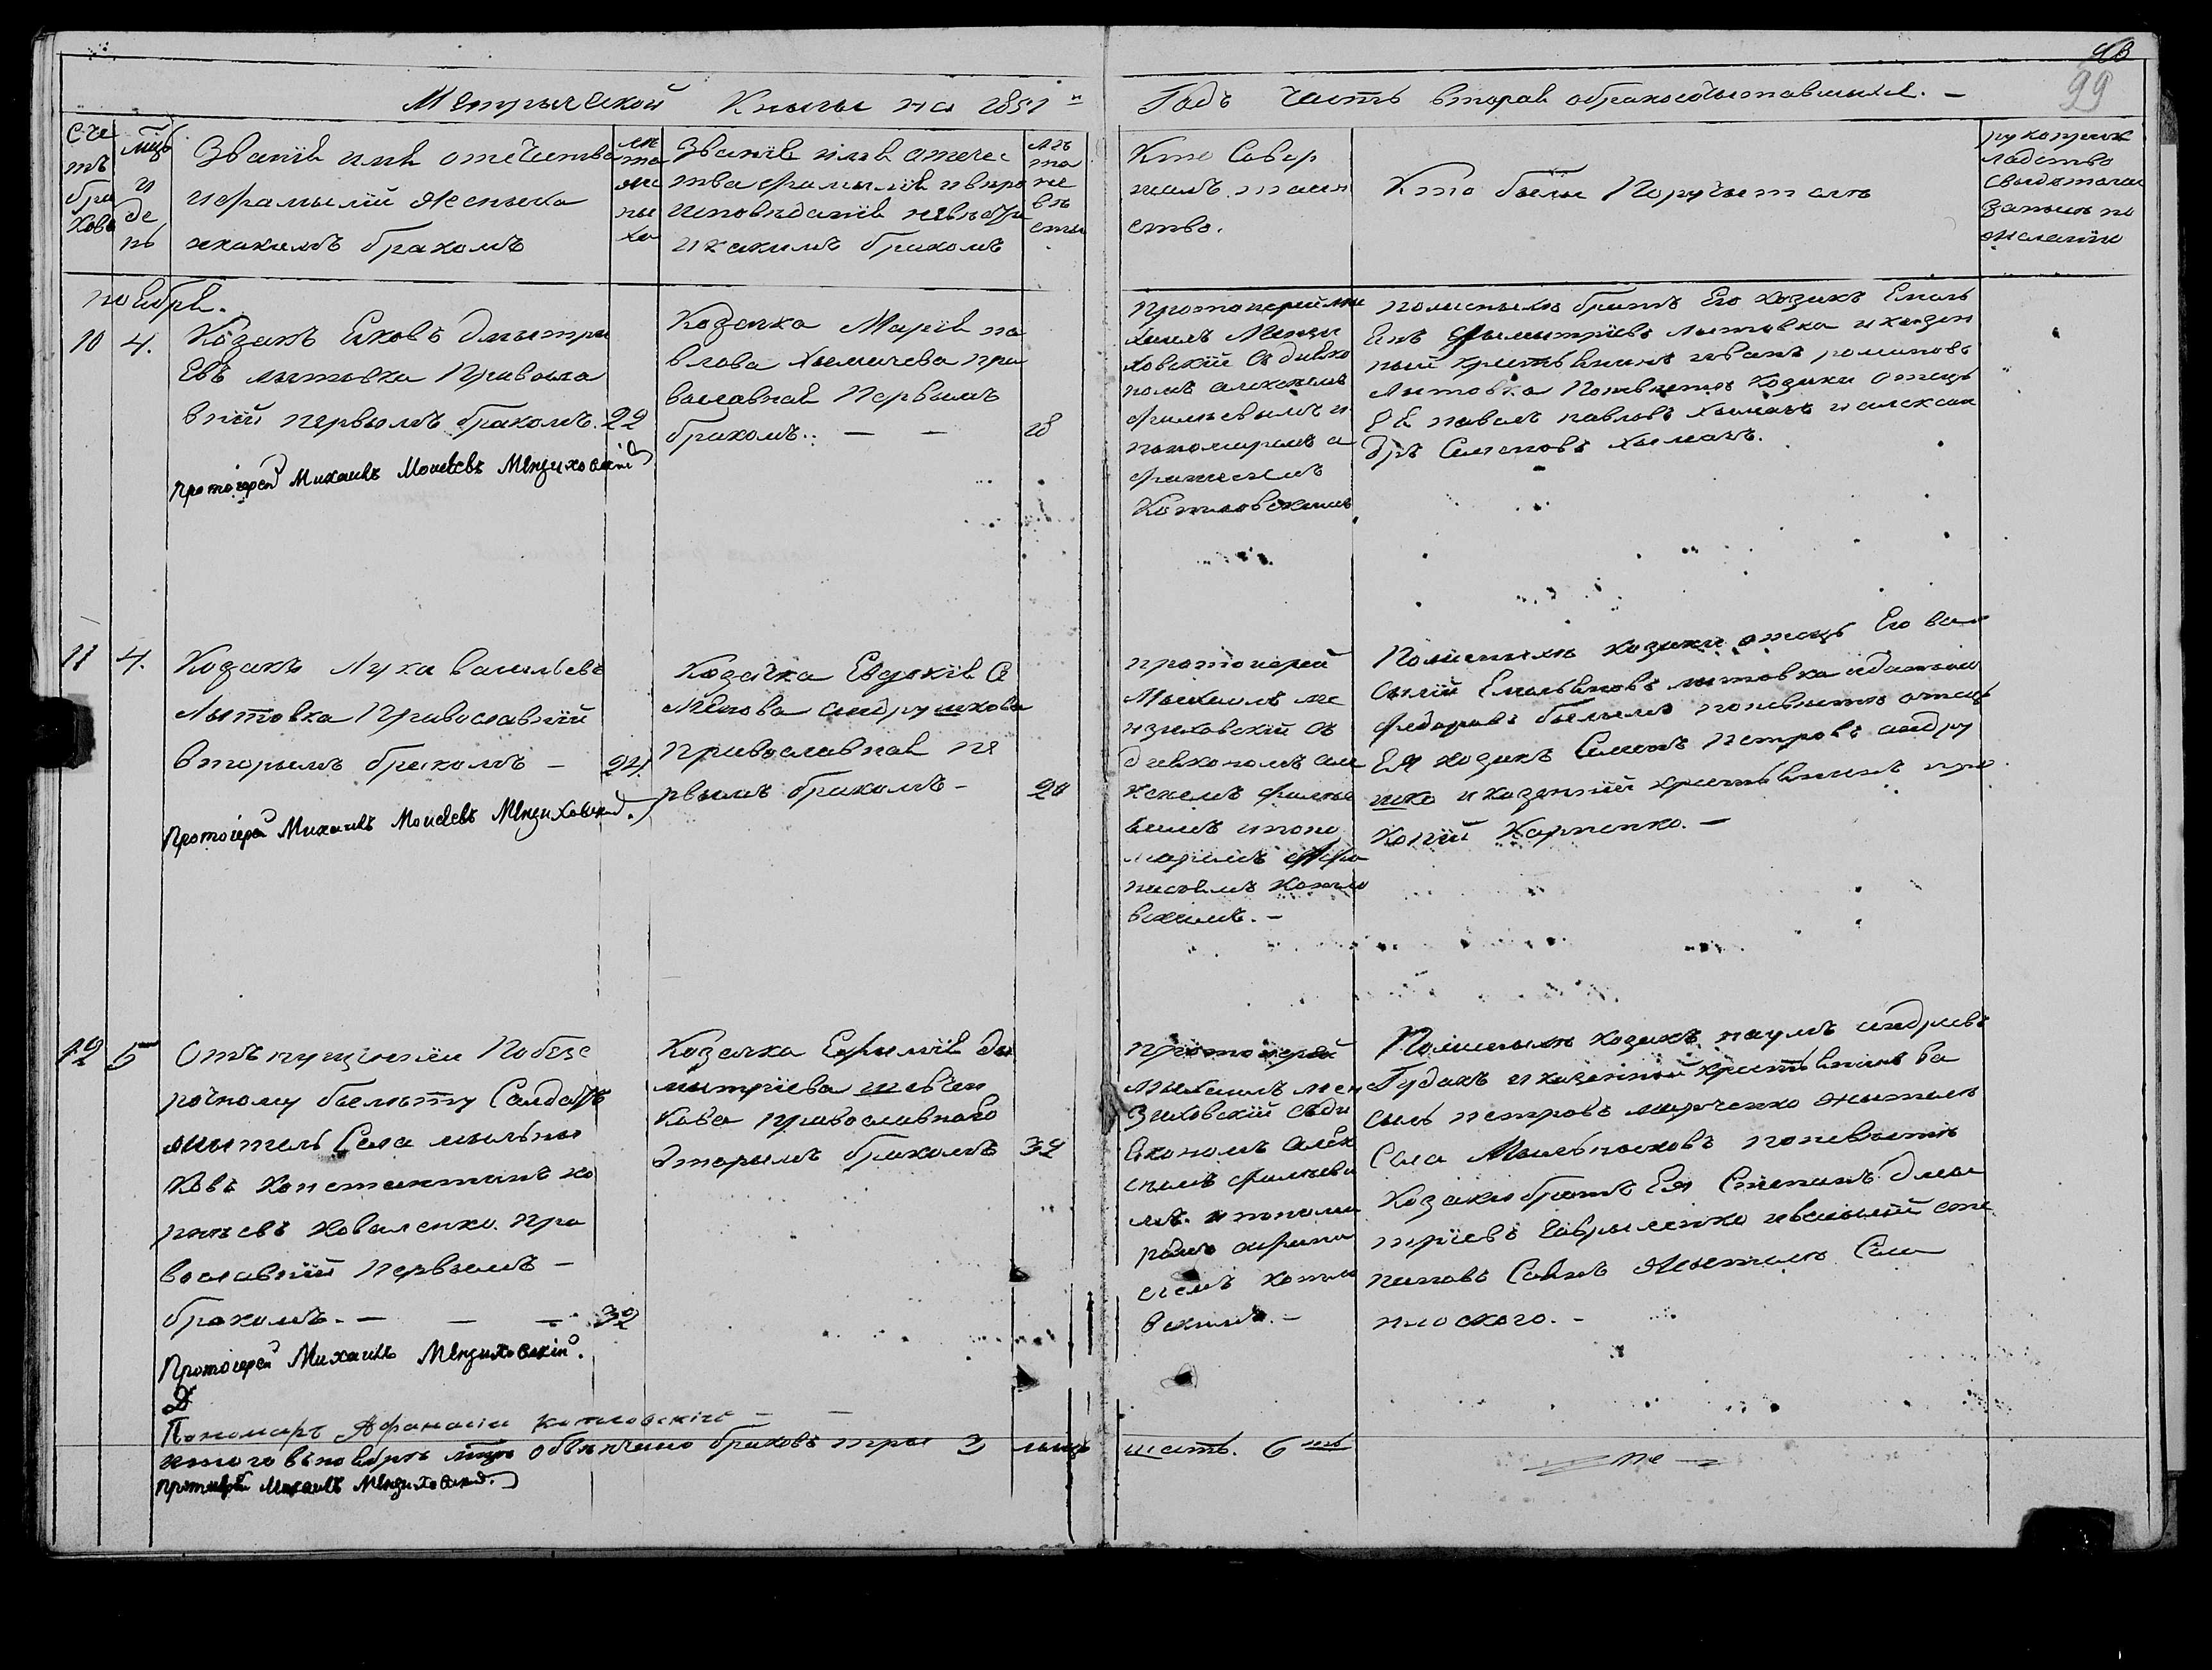 99
Метрыческой Кныгы на 1851 й Годъ Часть вторая обракосочытавшыхся. –
Сче
тъ
бра
ковъ
мць
и
де
нь
Званія имя отечество
и фамылій женыха
и какимъ бракомъ
лѣ
та
же
ны
ха
Званія имя отечес
тва фамылія и вѣро
исповѣданія невѣсты
и какимъ бракомъ
лѣ
та
не
вѣ
сты
Кто Совер
шалъ таин
ство.
Кто былы Поручытель
рукоприк
ладство
свыдѣтелей
запысы по
желанію
ноября.
10 4.
Козакъ Яковъ Дмытри
евъ лытовка Правосла
вній первымъ бракомъ. 22
Протоіерей Михаилъ Моисеевъ Мензиховскій
Козачка Марія па
влова Хымичева пра
вославная Первымъ
бракомъ. – – 18
Протоиерей ми
хаилъ Менжи
ховскій съ диако
номъ алексеемъ
филыевымъ и
пономаремъ а
фанасіемъ
Котловскимъ
по женыхѣ братъ Его козакъ Емель
янъ Дмытріевъ лытовка и казен
ный крестьянинъ иванъ романовъ
лытовка По невѣстѣ козаки отецъ
Ея павелъ павловъ хымачъ и алексан
дръ Семеновъ хымачъ.
11 4.
Козакъ Лука васильевъ
Лытовка Православній
вторымъ бракомъ – 24.
Протоіерей Михаилъ Моисеевъ Мензиховскій.
Козачка Евдокія Се
менова андрушкова
православная пе
рвымъ бракомъ – 20
протоиерей
Мыхаилъ ме
нзиховскій съ
диякономъ але
ксеемъ филые
вымъ и поно
маремъ Афа
насіемъ котло
вскимъ. –
По женыхѣ козаки отецъ Его ва
сылій Емельяновъ лытовка и
федоровъ по невѣстѣ отецъ
Ея козакъ Семенъ петровъ андру
шко и казенный крестьянинъ про
копій Карпенко. –
12 5
Отъ пущенны По безс
рочному былету Салдатъ
жытель Села мыльны
ковъ константинъ ко
рнѣевъ коваленко пра
вославній первымъ –
бракомъ. – – – 32
Протоіерей Михаилъ Мензиховскій.
Козачка Ефымія ды
мытріева шевчен
кова православного
вторымъ бракомъ 32
протоиерей
мыхаилъ мен
зиховскій съ ди
якономъ Алек
сеемъ филыевы
мъ и понома
ремъ афана
сіемъ котло
вскимъ. –
По женыхѣ козакъ наумъ андреевъ
Гудакъ и казенный крестьянинъ ва
сыль петровъ марченко жытель
Села Мыльныковъ по невѣстѣ
Козаки братъ Ея Степанъ дмы
тріевъ гаврыленко и васылій сте
пановъ Жытель Села
плоского. –
Д
Пономаръ Афанасій Котловскій – –
итого въ ноябрѣ мцѣ обвѣнчано браковъ тры 3 лыцъ шесть. 6 ть
Протоіерей Михаилъ Мензиховскій.